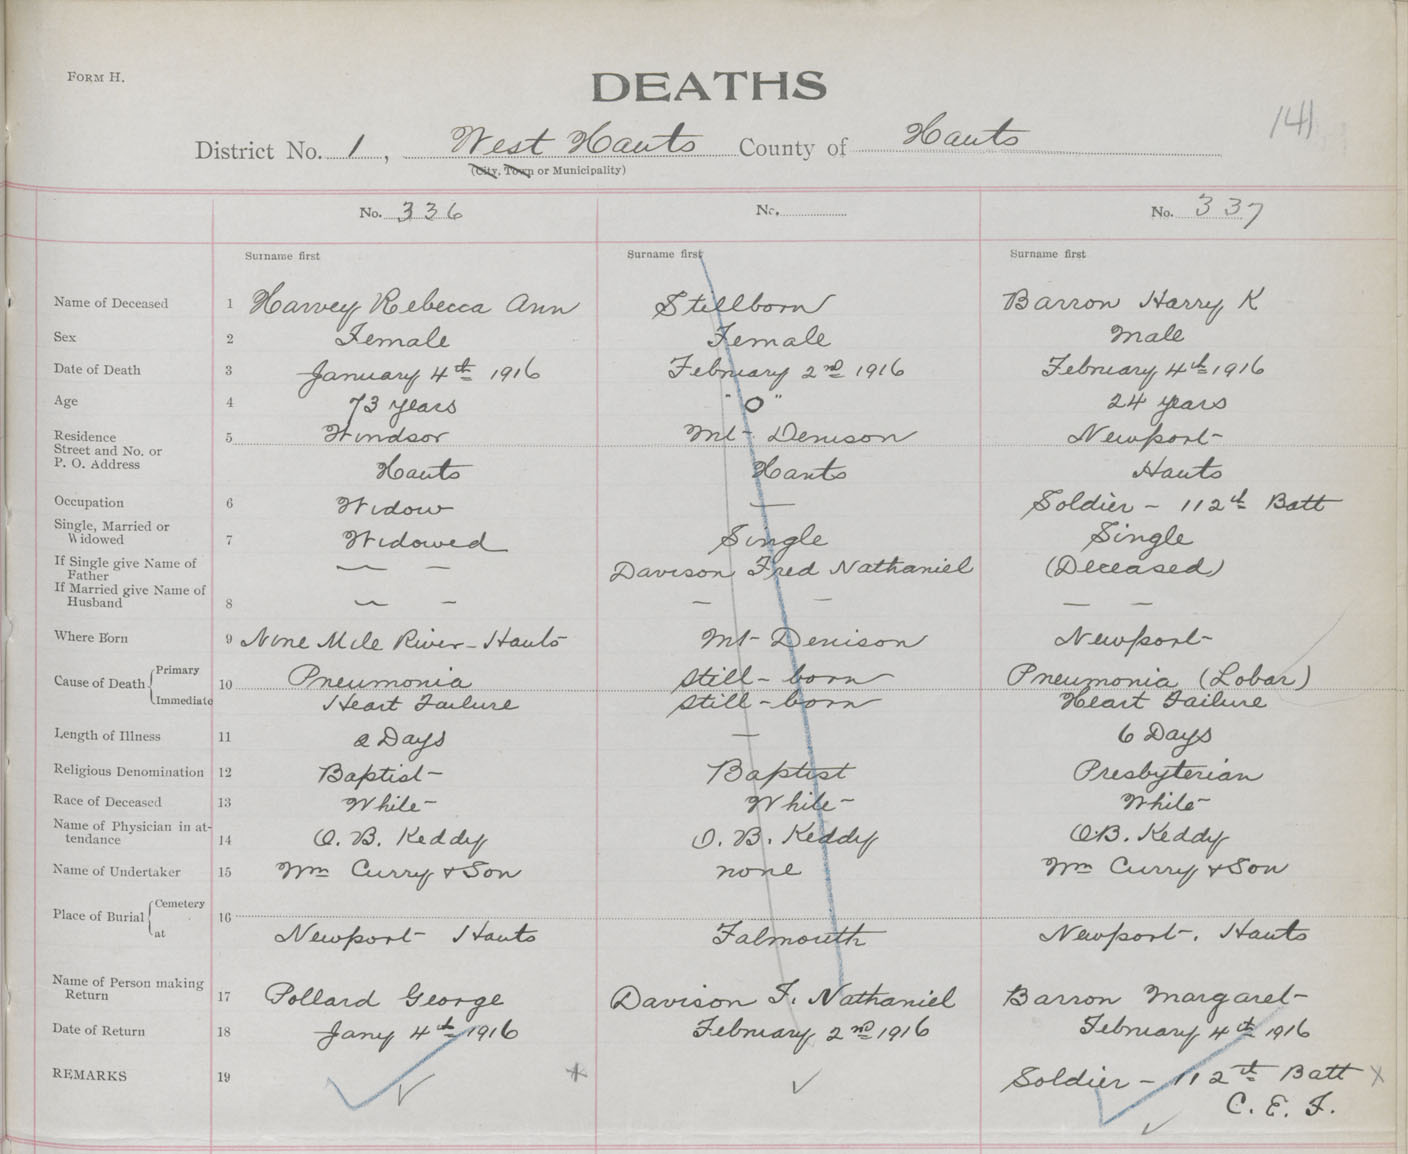 FORM H.
DEATHS
141
District No. 1, West Hants County of Hants
(City, Town or Municipality)
No. 336 No. No. 337
Surname first Surname first Surname first
Name of Deceased 1 Harvey Rebecca Ann Stillborn Barron Harry K
Sex 2 Female Female Male
Date of Death 3 January 4th 1916 February 2nd 1916 February 4th 1916
Age 4 73 years " 0 " 24 years
Residence 5 Windsor Mt- Denison Newport-
Street and No. or
P. O. Address Hants Hants Hants
Occupation 6 Widow — Soldier - 112th Batt
Single, Married or
Widowed 7 Widowed Single Single
If Single give Name of
Father — — Davison Fred Nathaniel (Deceased)
If Married give Name of
Husband 8 — — — — — —
Where Born 9 Nine Mile River - Hants Mt- Denison Newport-
Cause of Death Primary 10 Pneumonia Still-born Pneumonia (Lobar)
Immediate Heart Failure Still-born Heart Failure
Length of Illness 11 2 Days — 6 Days
Religious Denomination 12 Baptist- Baptist Presbyterian
Race of Deceased 13 White- White- White-
Name of Physician in at-
tendance 14 O. B. Keddy O. B. Keddy O.B. Keddy
Name of Undertaker 15 Wm Curry & Son none Wm Curry & Son
Place of Burial Cemetery 16
at Newport- Hants Falmouth Newport-. Hants
Name of Person making
Return 17 Pollard George Davison F. Nathaniel Barron Margaret-
Date of Return 18 Jany 4th 1916 February 2nd 1916 February 4th 1916
REMARKS 19 Soldier - 112th Batt x
C. E. F.